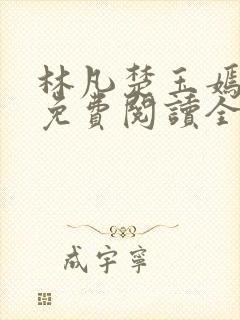 林凡楚玉嫣
免費閱讀全
成宇寧